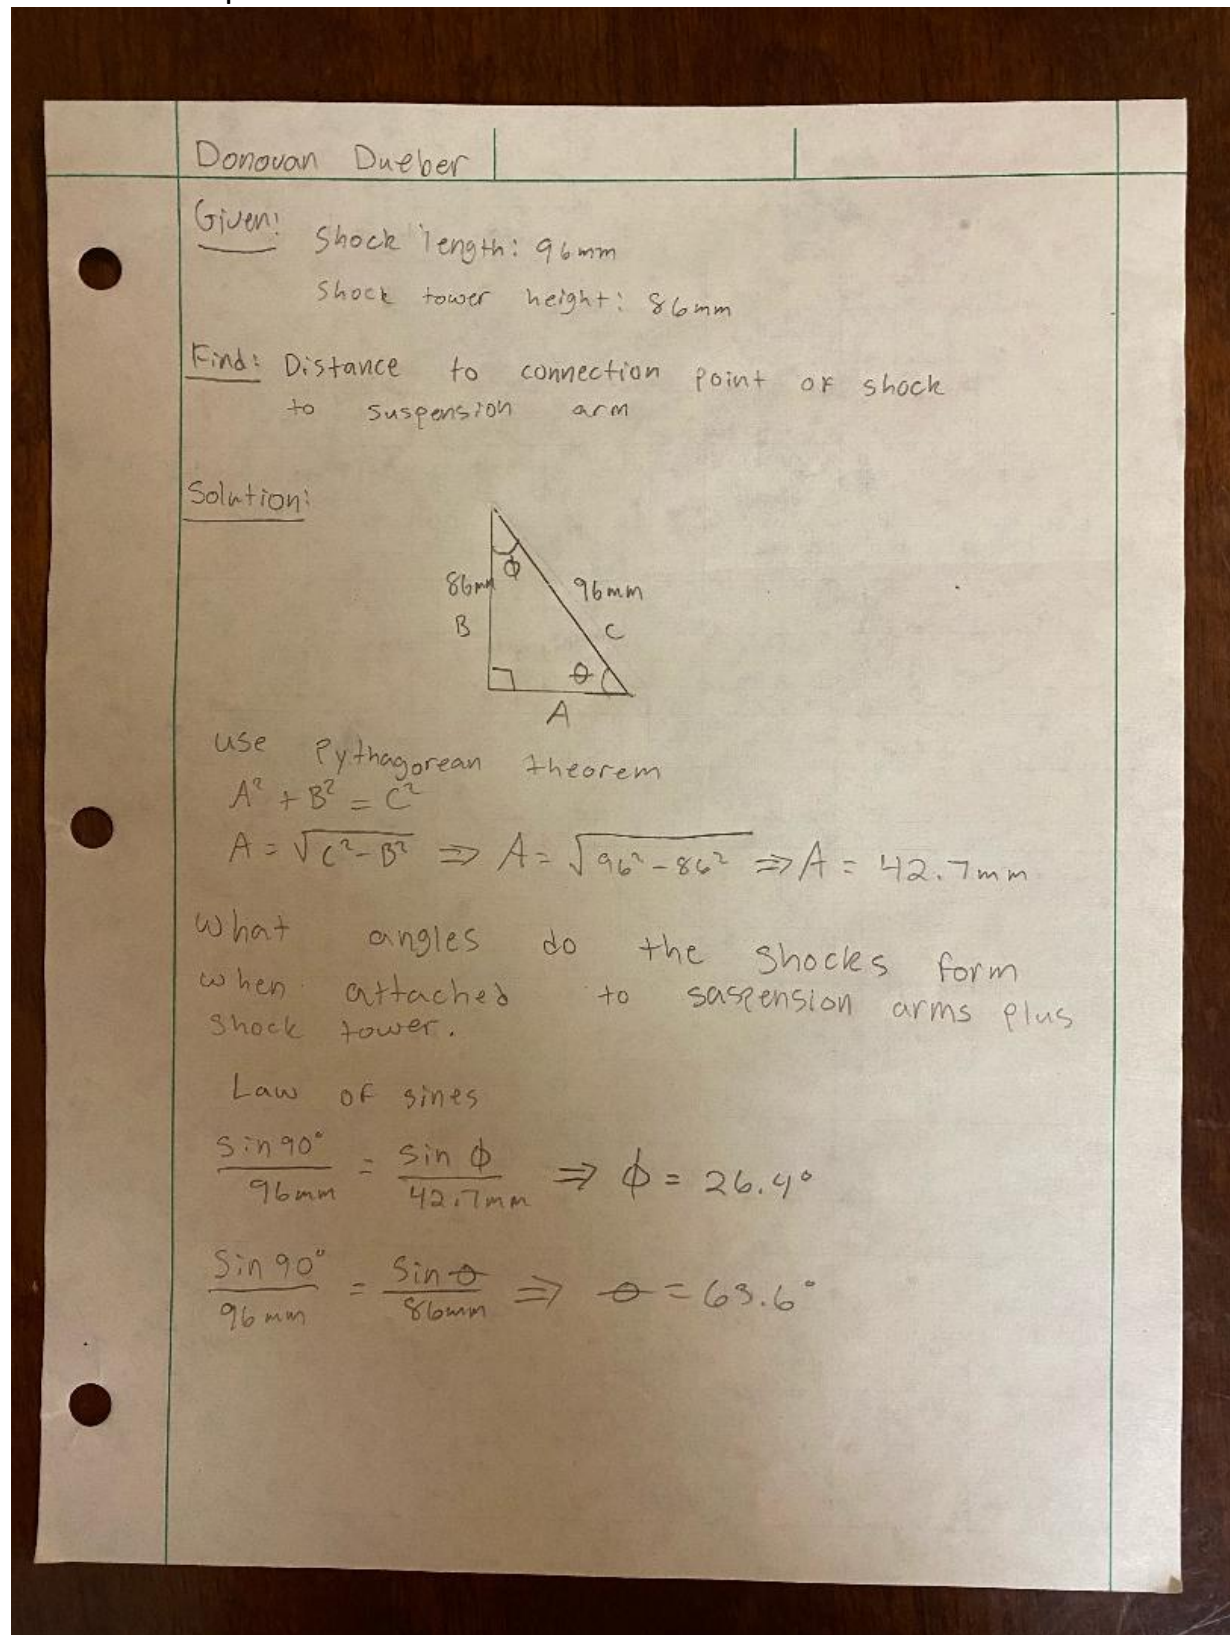 Donovan Dueber
Given:
Shock length: 96mm
Shock tower height: 86mm
Find: Distance to connection point of shock
to suspension arm
Solution:
86mm
ϕ
96mm
B
C
θ
A
use Pythagorean theorem
A² + B² = C²
A = √C²-B² ⇒ A = √96²-86² ⇒ A = 42.7mm
What angles do the shocks form
when attached to saspension arms plus
shock tower.
Law of sines
sin 90°/96mm = sin ϕ/42.7mm ⇒ ϕ = 26.4°
Sin 90°/96mm = Sin θ/86mm ⇒ θ = 63.6°